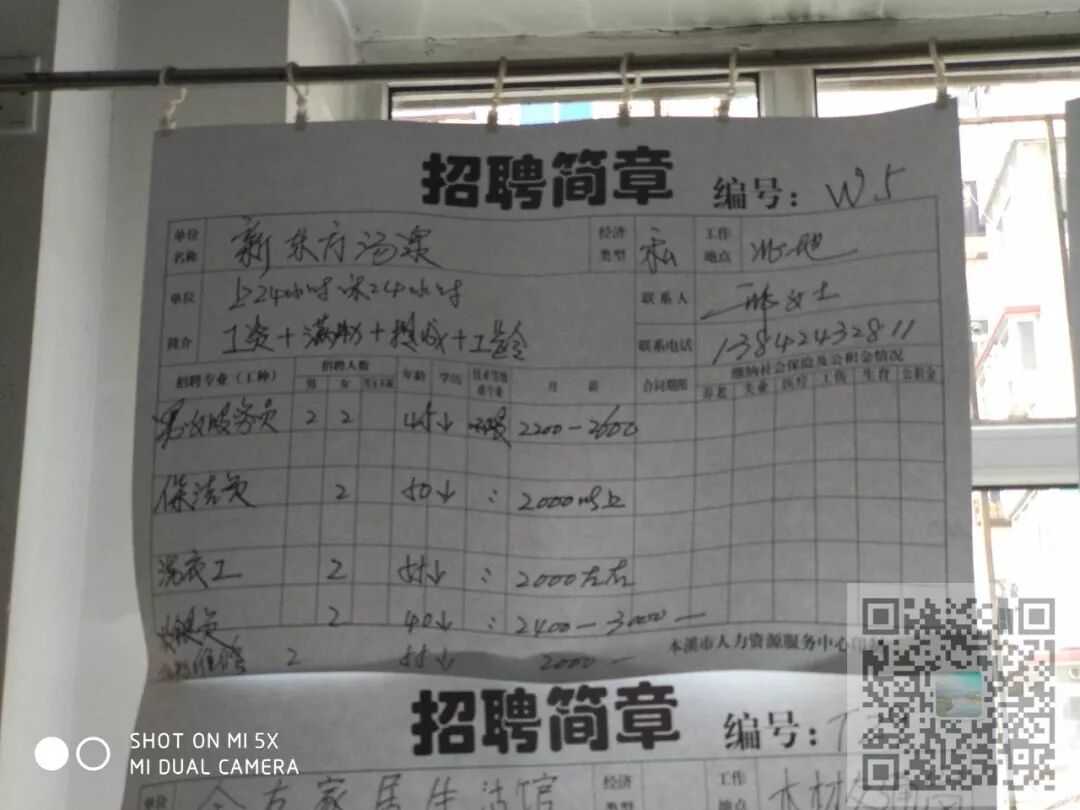 招聘简章 编号：W5
单位名称 新东方汤泉 经济类型 私 工作地点
单位简介 上24小时休24小时 联系人
工资+满勤+提成+工龄 联系电话 13842432811
招聘专业（工种） 招聘人数 年龄 学历 技术等级或专业 月薪 合同期限 缴纳社会保险及公积金情况
男 女 男女不限 养老 失业 医疗 工伤 生育 公积金
男女服务员 2 2 45↓ 2200-2600
保洁员 2 50↓ : 2000以上
洗衣工 2 55↓ : 2000左右
2 40↓ : 2400-3000
2 55↓ 2000
本溪市人力资源服务中心印制
招聘简章 编号：
单位 全友家居生活馆 经济类型 工作地点
SHOT ON MI 5X
MI DUAL CAMERA